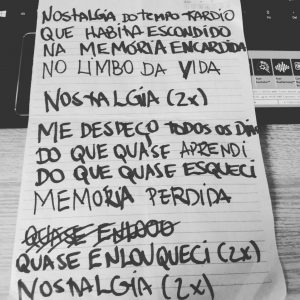 NOSTALGIA DO TEMPO TARDIO
QUE HABITA ESCONDIDO
NA MEMÓRIA ENCARDIDA
NO LIMBO DA VIDA
NOSTALGIA (2x)
ME DESPEÇO TODOS OS DIAS
DO QUE QUASE APRENDI
DO QUE QUASE ESQUECI
MEMÓRIA PERDIDA
QUASE
QUASE ENLOUQUECI (2x)
NOSTALGIA (2x)